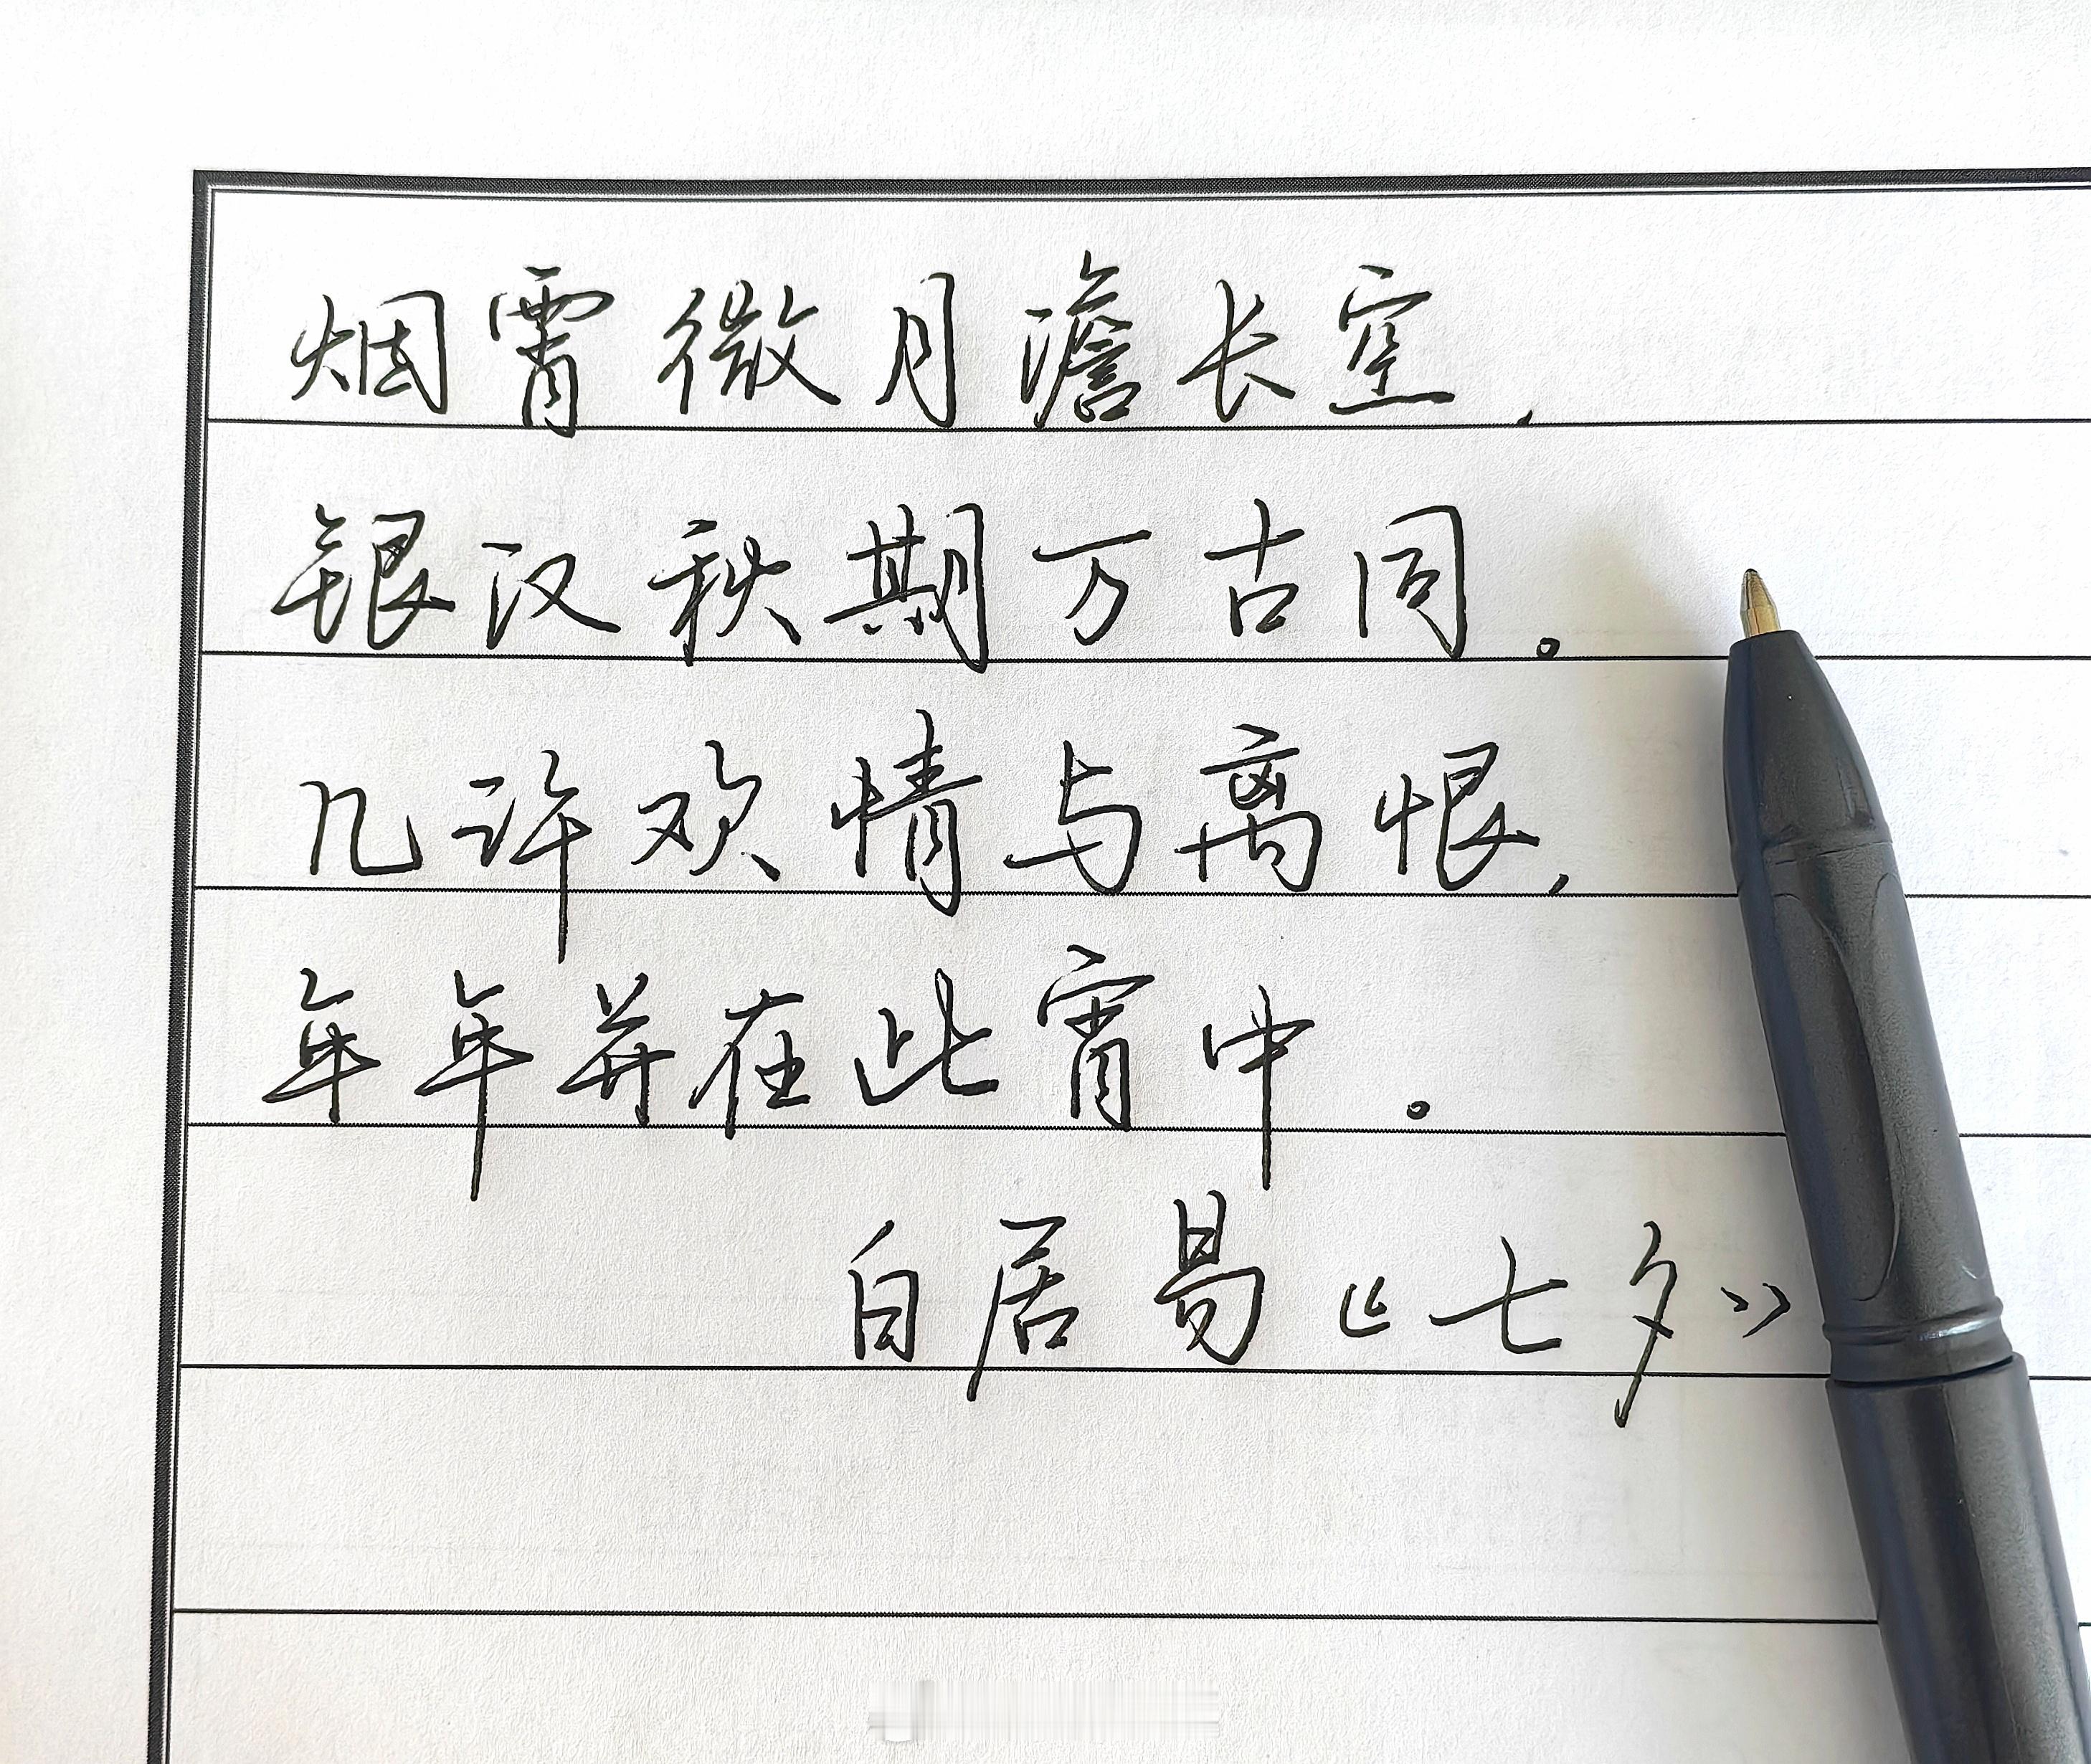 烟霄微月澹长空，
银汉秋期万古同。
几许欢情与离恨，
年年并在此宵中。
白居易《七夕》